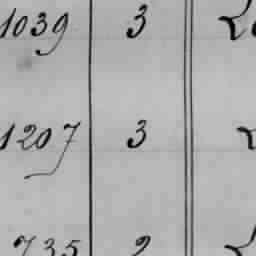 1039 3
1207 3
735 2